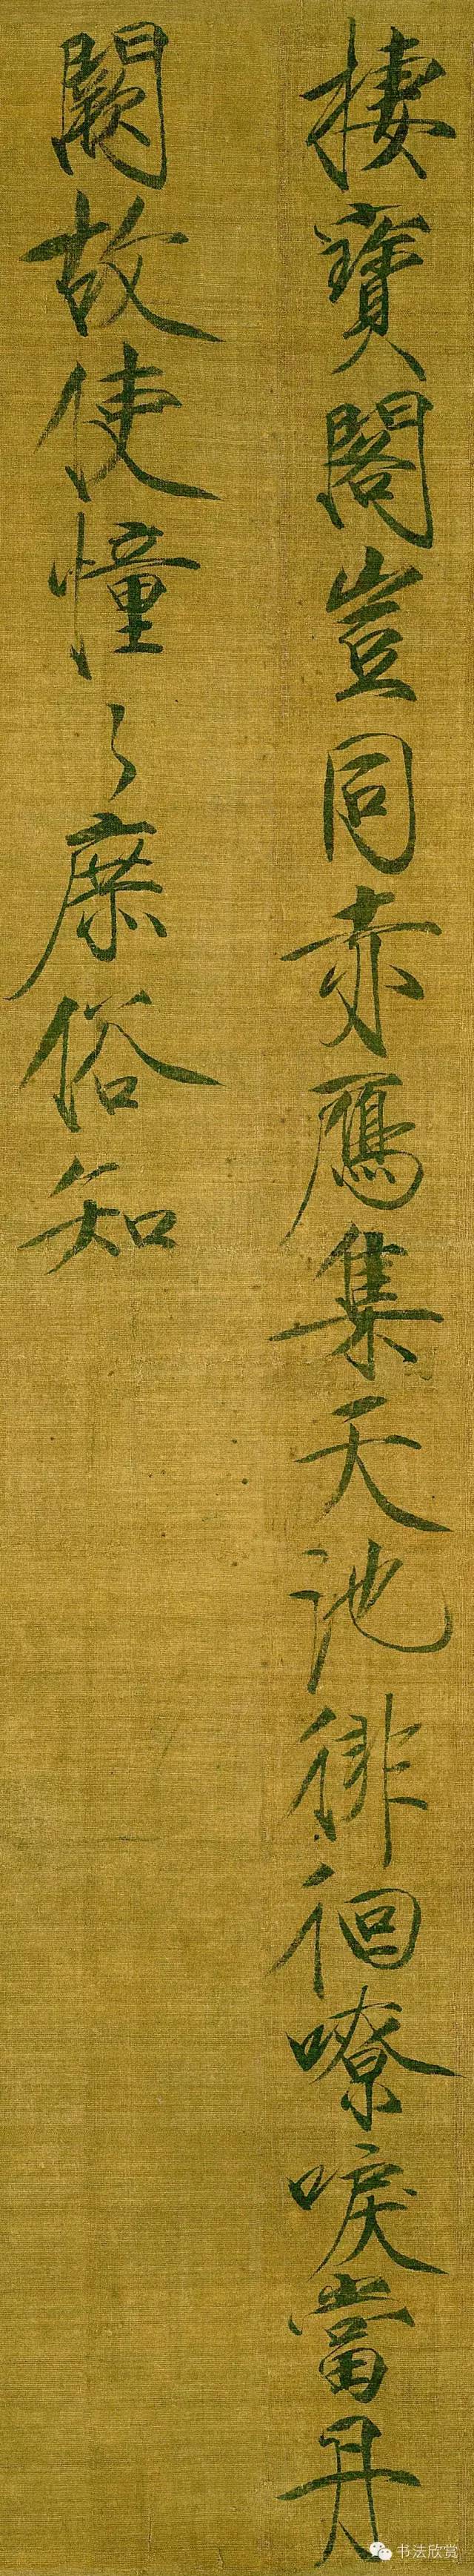 棲寶閣豈同赤鴈集天池徘徊嘹唳當丹
闕故使憧〻庶俗知
书法欣赏